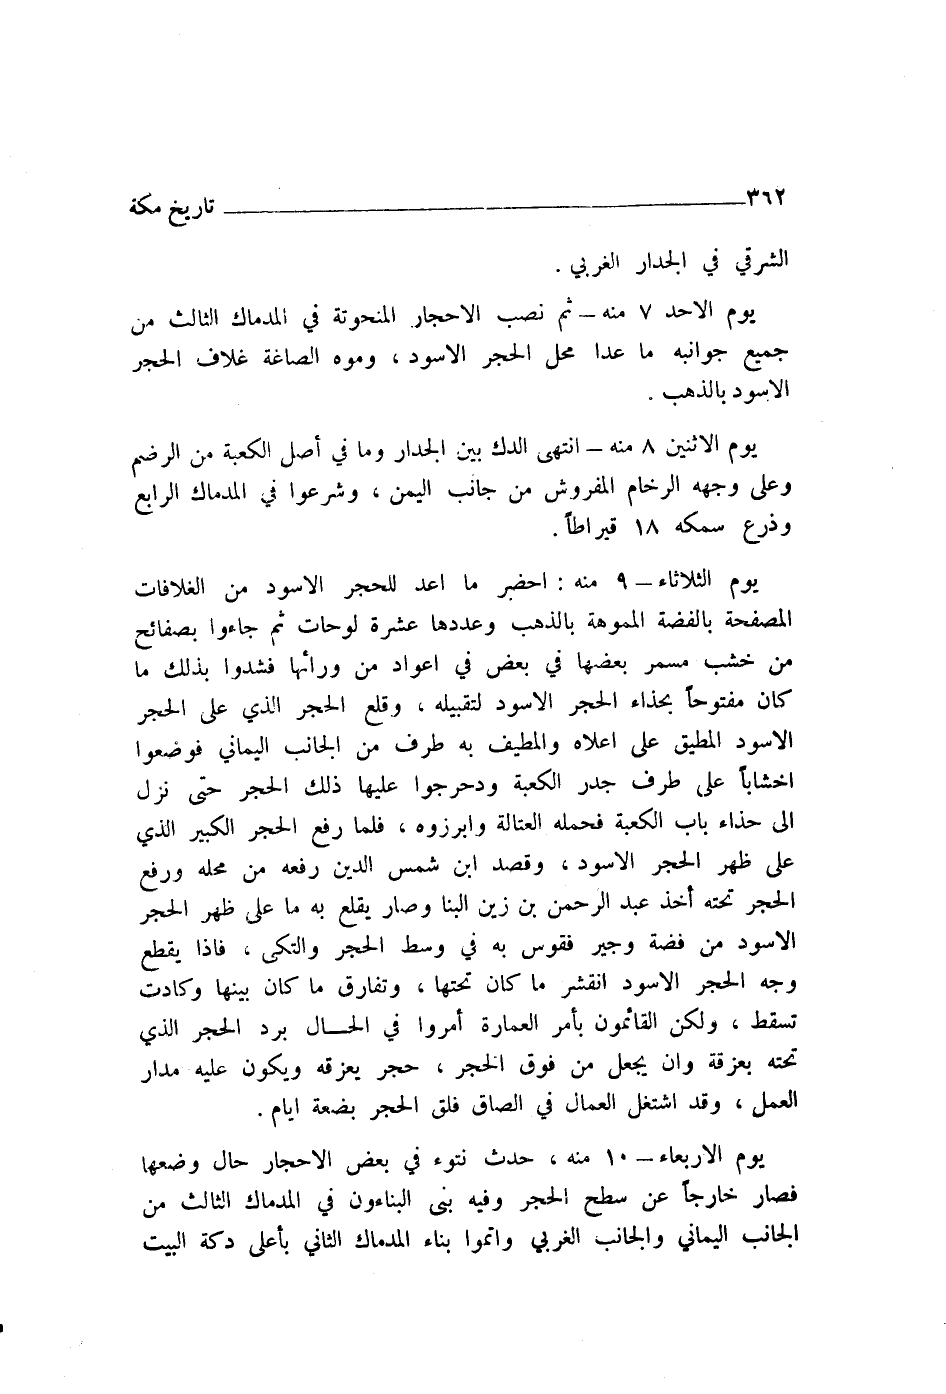 ٣٦٢ تاريخ مكة
الشرقي في الجدار الغربي .
يوم الاحد ٧ منه – ثم نصب الاحجار المنحوتة في المدماك الثالث من
جميع جوانبه ما عدا محل الحجر الاسود ، وموه الصاغة غلاف الحجر
الاسود بالذهب .
يوم الاثنين ٨ منه – انتهى الدك بين الجدار وما في أصل الكعبة من الرضم
وعلى وجهه الرخام المفروش من جانب اليمن ، وشرعوا في المدماك الرابع
وذرع سمكه ١٨ قيراطاً .
يوم الثلاثاء – ٩ منه : احضر ما اعد للحجر الاسود من الغلافات
المصفحة بالفضة المموهة بالذهب وعددها عشرة لوحات ثم جاءوا بصفائح
من خشب مسمر بعضها في بعض في اعواد من ورائها فشدوا بذلك ما
كان مفتوحاً بحذاء الحجر الاسود لتقبيله ، وقلع الحجر الذي على الحجر
الاسود المطبق على اعلاه والمطيف به طرف من الجانب اليماني فوضعوا
اخشاباً على طرف جدر الكعبة ودحرجوا عليها ذلك الحجر حتى نزل
الى حذاء باب الكعبة فحمله العتالة وابرزوه ، فلما رفع الحجر الكبير الذي
على ظهر الحجر الاسود ، وقصد ابن شمس الدين رفعه من محله ورفع
الحجر تحته أخذ عبد الرحمن بن زين البنا وصار يقلع به ما على ظهر الحجر
الاسود من فضة وجير فقوس به في وسط الحجر والتكى ، فاذا يقطع
وجه الحجر الاسود انقشر ما كان تحتها ، وتفارق ما كان بينها وكادت
تسقط ، ولكن القائمون بأمر العمارة أمروا في الحال برد الحجر الذي
تحته بعزقة وان يجعل من فوق الحجر ، حجر يعزقه ويكون عليه مدار
العمل ، وقد اشتغل العمال في الصاق فلق الحجر بضعة ايام .
يوم الاربعاء – ١٠ منه ، حدث نتوء في بعض الاحجار حال وضعها
فصار خارجاً عن سطح الحجر وفيه بنى البناءون في المدماك الثالث من
الجانب اليماني والجانب الغربي واتموا بناء المدماك الثاني بأعلى دكة البيت